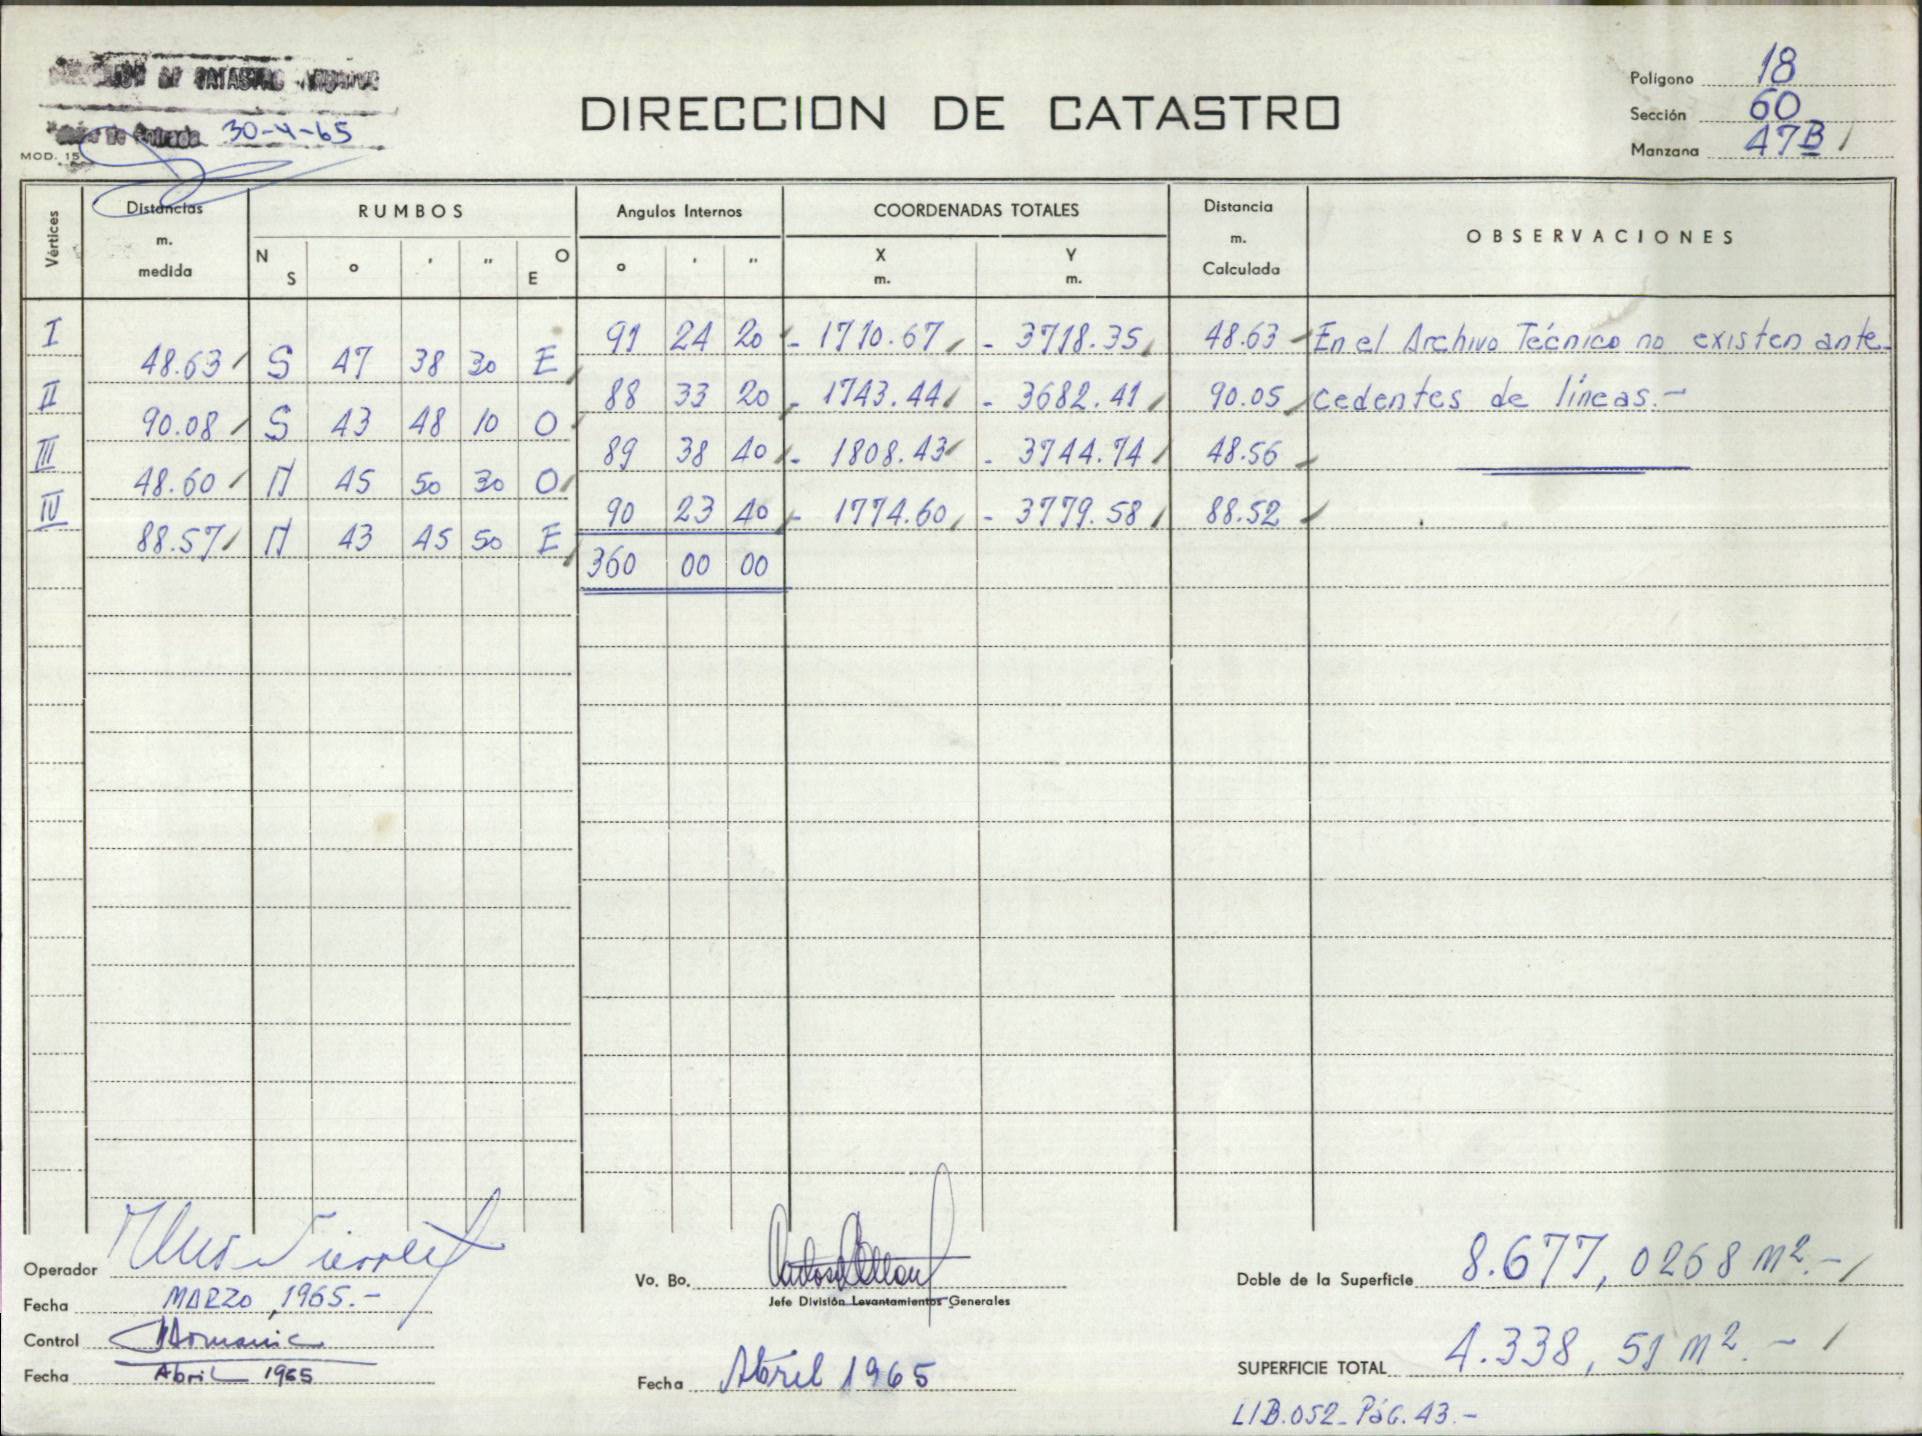 DE CATASTRO
de Entrada 30-4-65
MOD. 15
DIRECCION DE CATASTRO
Polígono 18
Sección 60
Manzana 47B
Vértices
Distancias m. medida
RUMBOS
N S ° ' " O E
Angulos Internos
° ' "
COORDENADAS TOTALES
X m. Y m.
Distancia m. Calculada
OBSERVACIONES
I 91 24 20 - 1710.67 - 3718.35 48.63 En el Archivo Técnico no existen ante-
48.63 S 47 38 30 E
II 88 33 20 - 1743.44 - 3682.41 90.05 cedentes de líneas.-
90.08 S 43 48 10 O
III 89 38 40 - 1808.43 - 3744.74 48.56
48.60 N 45 50 30 O
IV 90 23 40 - 1774.60 - 3779.58 88.52
88.57 N 43 45 50 E
360 00 00
Operador
Fecha MARZO, 1965.-
Control
Fecha Abril 1965
Vo. Bo.
Jefe División Levantamientos Generales
Fecha Abril 1965
Doble de la Superficie 8.677,0268 m2.-
SUPERFICIE TOTAL 4.338,51 m2.-
LIB.052- Pág. 43.-